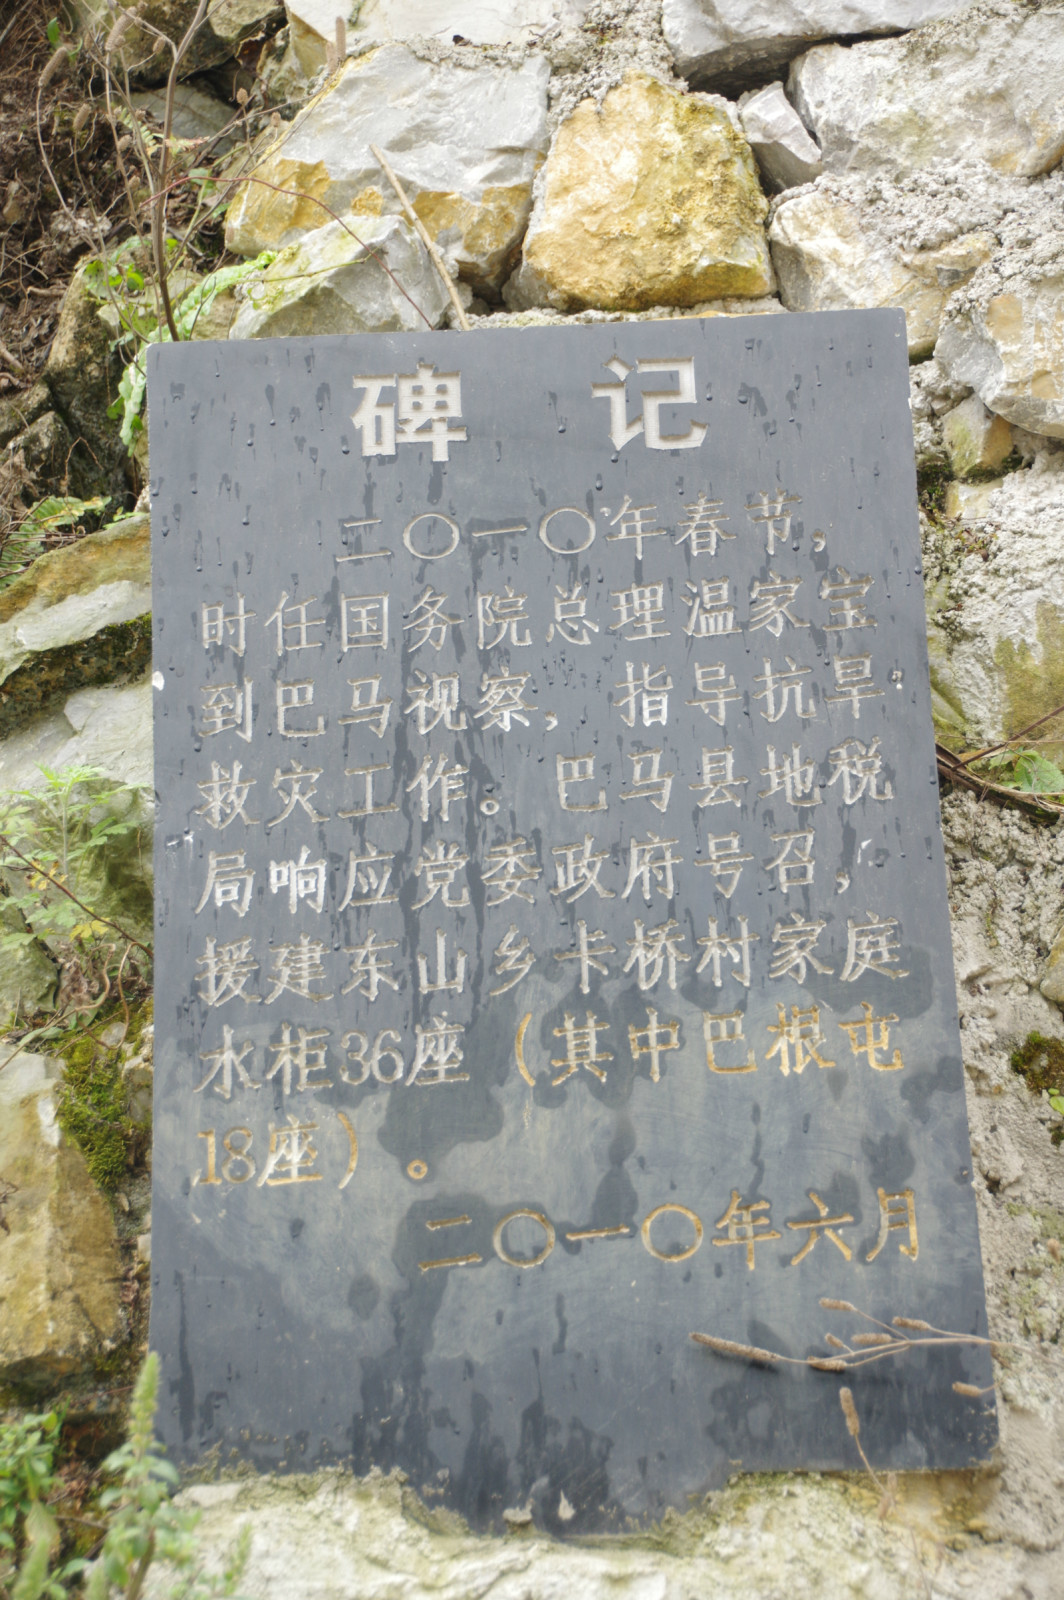 碑记
二〇一〇年春节，
时任国务院总理温家宝
到巴马视察，指导抗旱
救灾工作。巴马县地税
局响应党委政府号召，
援建东山乡卡桥村家庭
水柜36座（其中巴根屯
18座）。
二〇一〇年六月